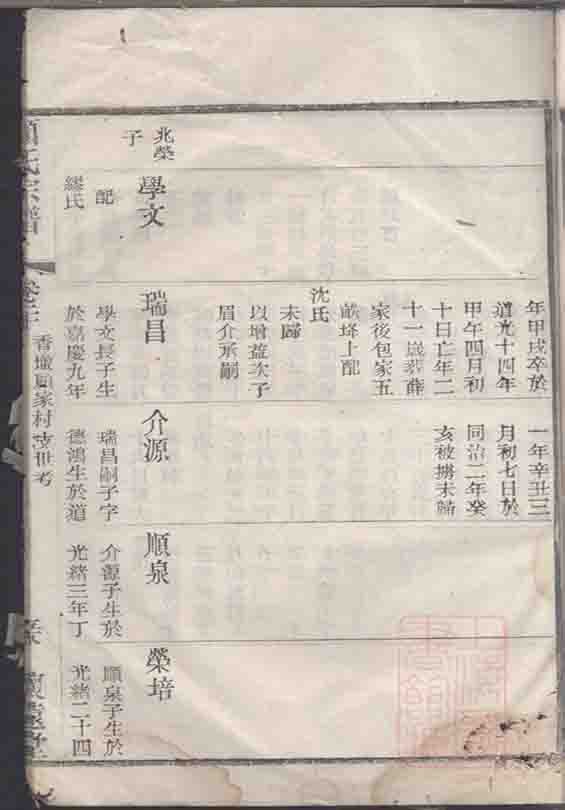 兆榮
子
學文
配
繆氏
年甲戌卒於
道光十四年
甲午四月初
十日亡年二
十一歲葬薛
家後包家五
畝上配
沈氏
未歸
以增益次子
眉介承嗣
瑞昌
學文長子生
於嘉慶九年
一年辛丑三
月初七日於
同治二年癸
亥被擄未歸
介源
瑞昌嗣子字
德鴻生於道
順泉
介源子生於
光緒三年丁
榮培
順泉子生於
光緒二十四
氏宗譜
香墩顧家村支世考